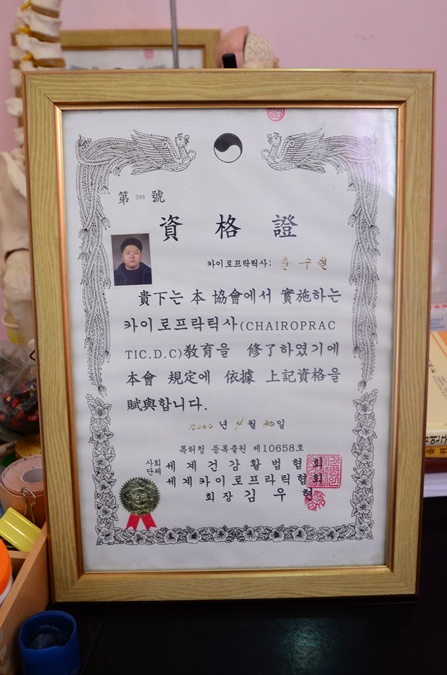 第 399 號
資格證
카이로프락틱사: 윤수현
貴下는 本 協會에서 實施하는
카이로프락틱사(CHAIROPRAC
TIC.D.C)敎育을 修了하였기에
本會 規定에 依據 上記資格을
賦與합니다.
2000년 月 30일
특허청 등록출원 제10658호
사회단체 세계건강활법협회
세계카이로프라틱협회
회장 김우현